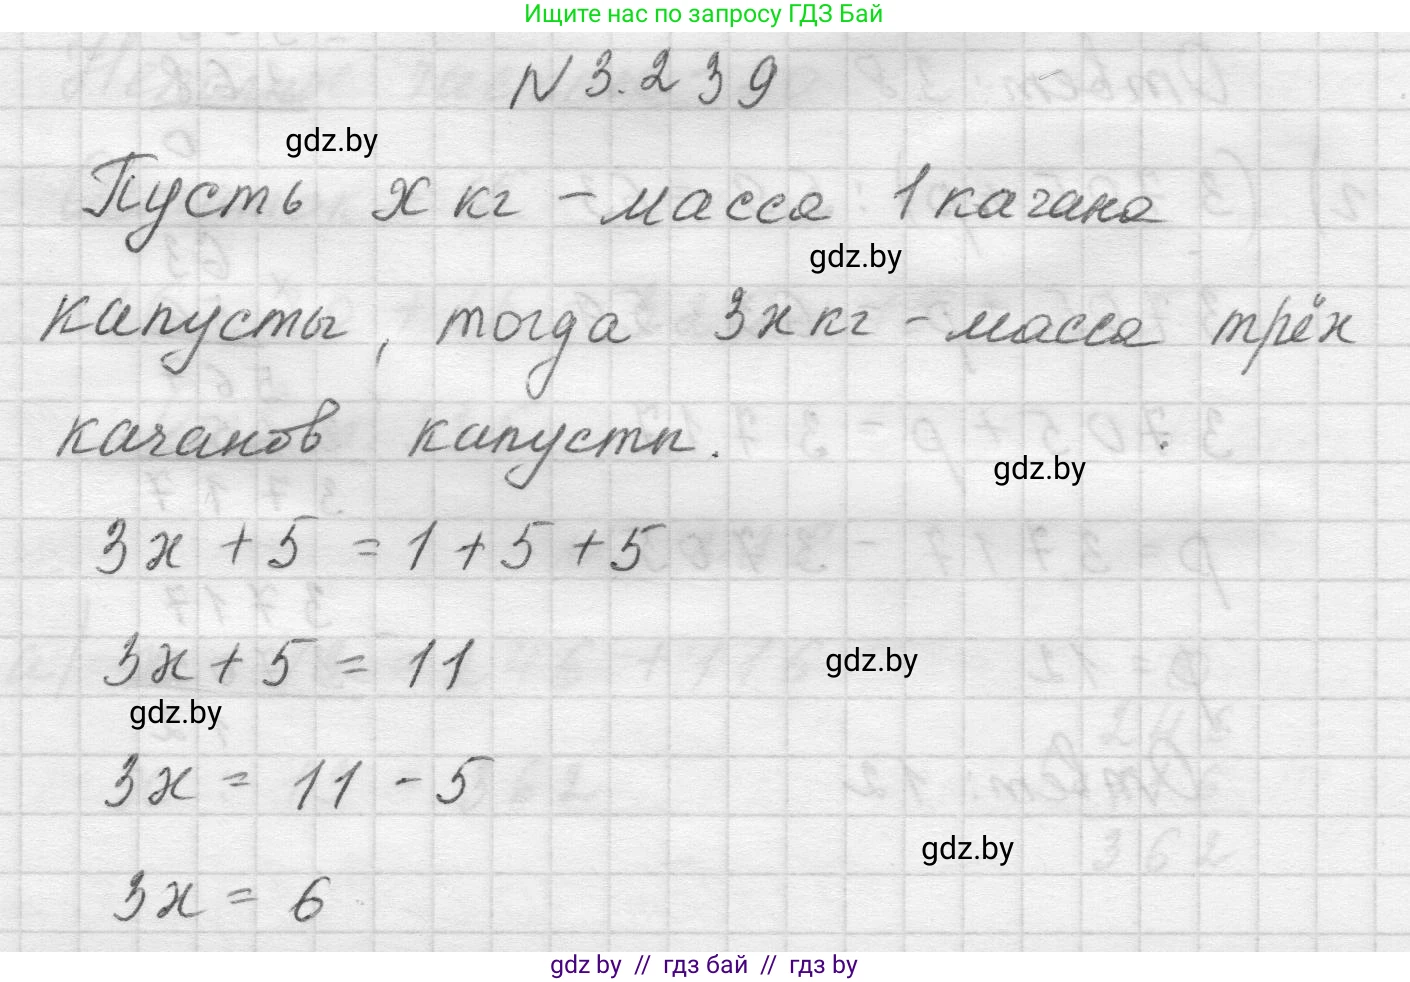 Ищите нас по запросу ГДЗ Бай
N 3.239
gdz.by
Пусть x кг - масса 1 качана
gdz.by
капусты, тогда 3x кг - масса трёх
качанов капусты.
gdz.by
3x + 5 = 1 + 5 + 5
3x + 5 = 11
gdz.by
gdz.by
3x = 11 - 5
gdz.by
3x = 6
gdz by // гдз бай // гдз by